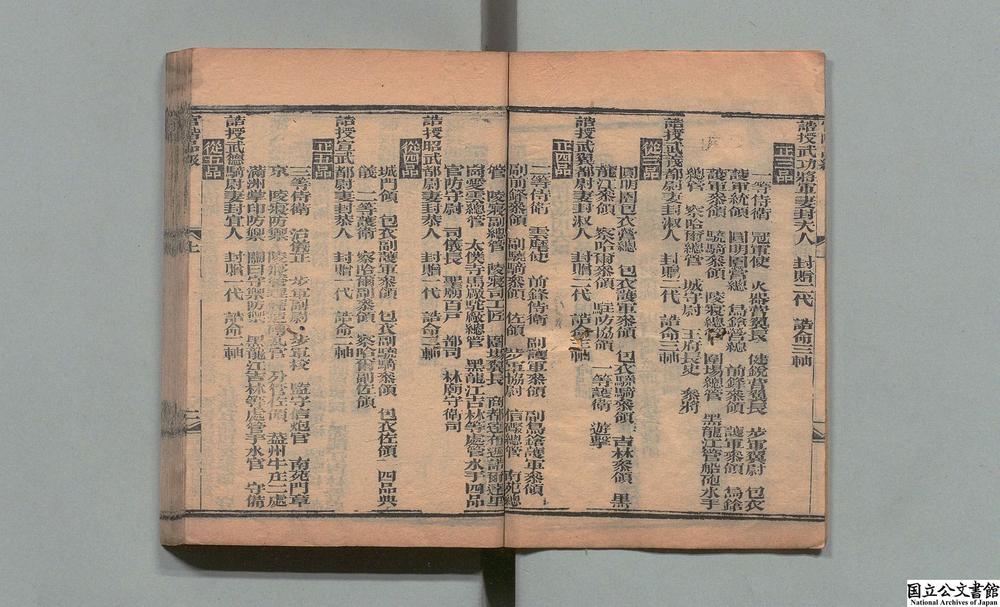 誥授武功將軍妻封夫人　封贈二代　誥命三軸
正三品
一等侍衛　冠軍使　火器營翼長　健銳營翼長　步軍翼尉　包衣
護軍統領　圓明園營總　鳥鎗營總　前鋒參領　護軍參領　鳥鎗
護軍參領　驍騎參領　陵寢總管　圍場總管　黑龍江管船砲水手
總管　察哈爾總管　城守尉　王府長史　參將
誥授武義都尉妻封淑人　封贈二代　誥命三軸
從三品
圓明園包衣營總　包衣護軍參領　包衣驍騎參領　吉林參領　黑
龍江參領　察哈爾參領　駐防協領　一等護衛　遊擊
誥授武翼都尉妻封淑人　封贈二代　誥命三軸
正四品
二等侍衛　雲麾使　前鋒侍衛　副護軍參領　副鳥鎗護軍參領
副前鋒參領　副驍騎參領　佐領　步軍協尉　信礮總管　南苑總
管　陵寢副總管　陵寢司工匠　圍場翼長　商都達布遜諾爾達里
岡愛雲總管　太僕寺馬廠駝廠總管　黑龍江吉林等處管水手四品
官防守尉　司儀長　聖廟百戶　都司　林廟守衛司
誥授昭武都尉妻封恭人　封贈二代　誥命
從四品
城門領　包衣副護軍參領　包衣副驍騎參領　包衣佐領　四品典
儀　二等護衛　察哈爾副參領　察哈爾副佐領
誥授宣武都尉妻封恭人　封贈二代　誥命二軸
正五品
三等侍衛　治儀正　步軍副尉　步軍校　監守信炮官　南苑門章
京　陵寢防禦　陵寢　官　牙　管佐領　盛州牛庄二處
滿洲掌印防禦　關口守禦防禦　黑龍江吉林等處管水手官　守備
誥授武德騎尉妻封宜人　封贈二代　誥命二軸
從五品
官階品級